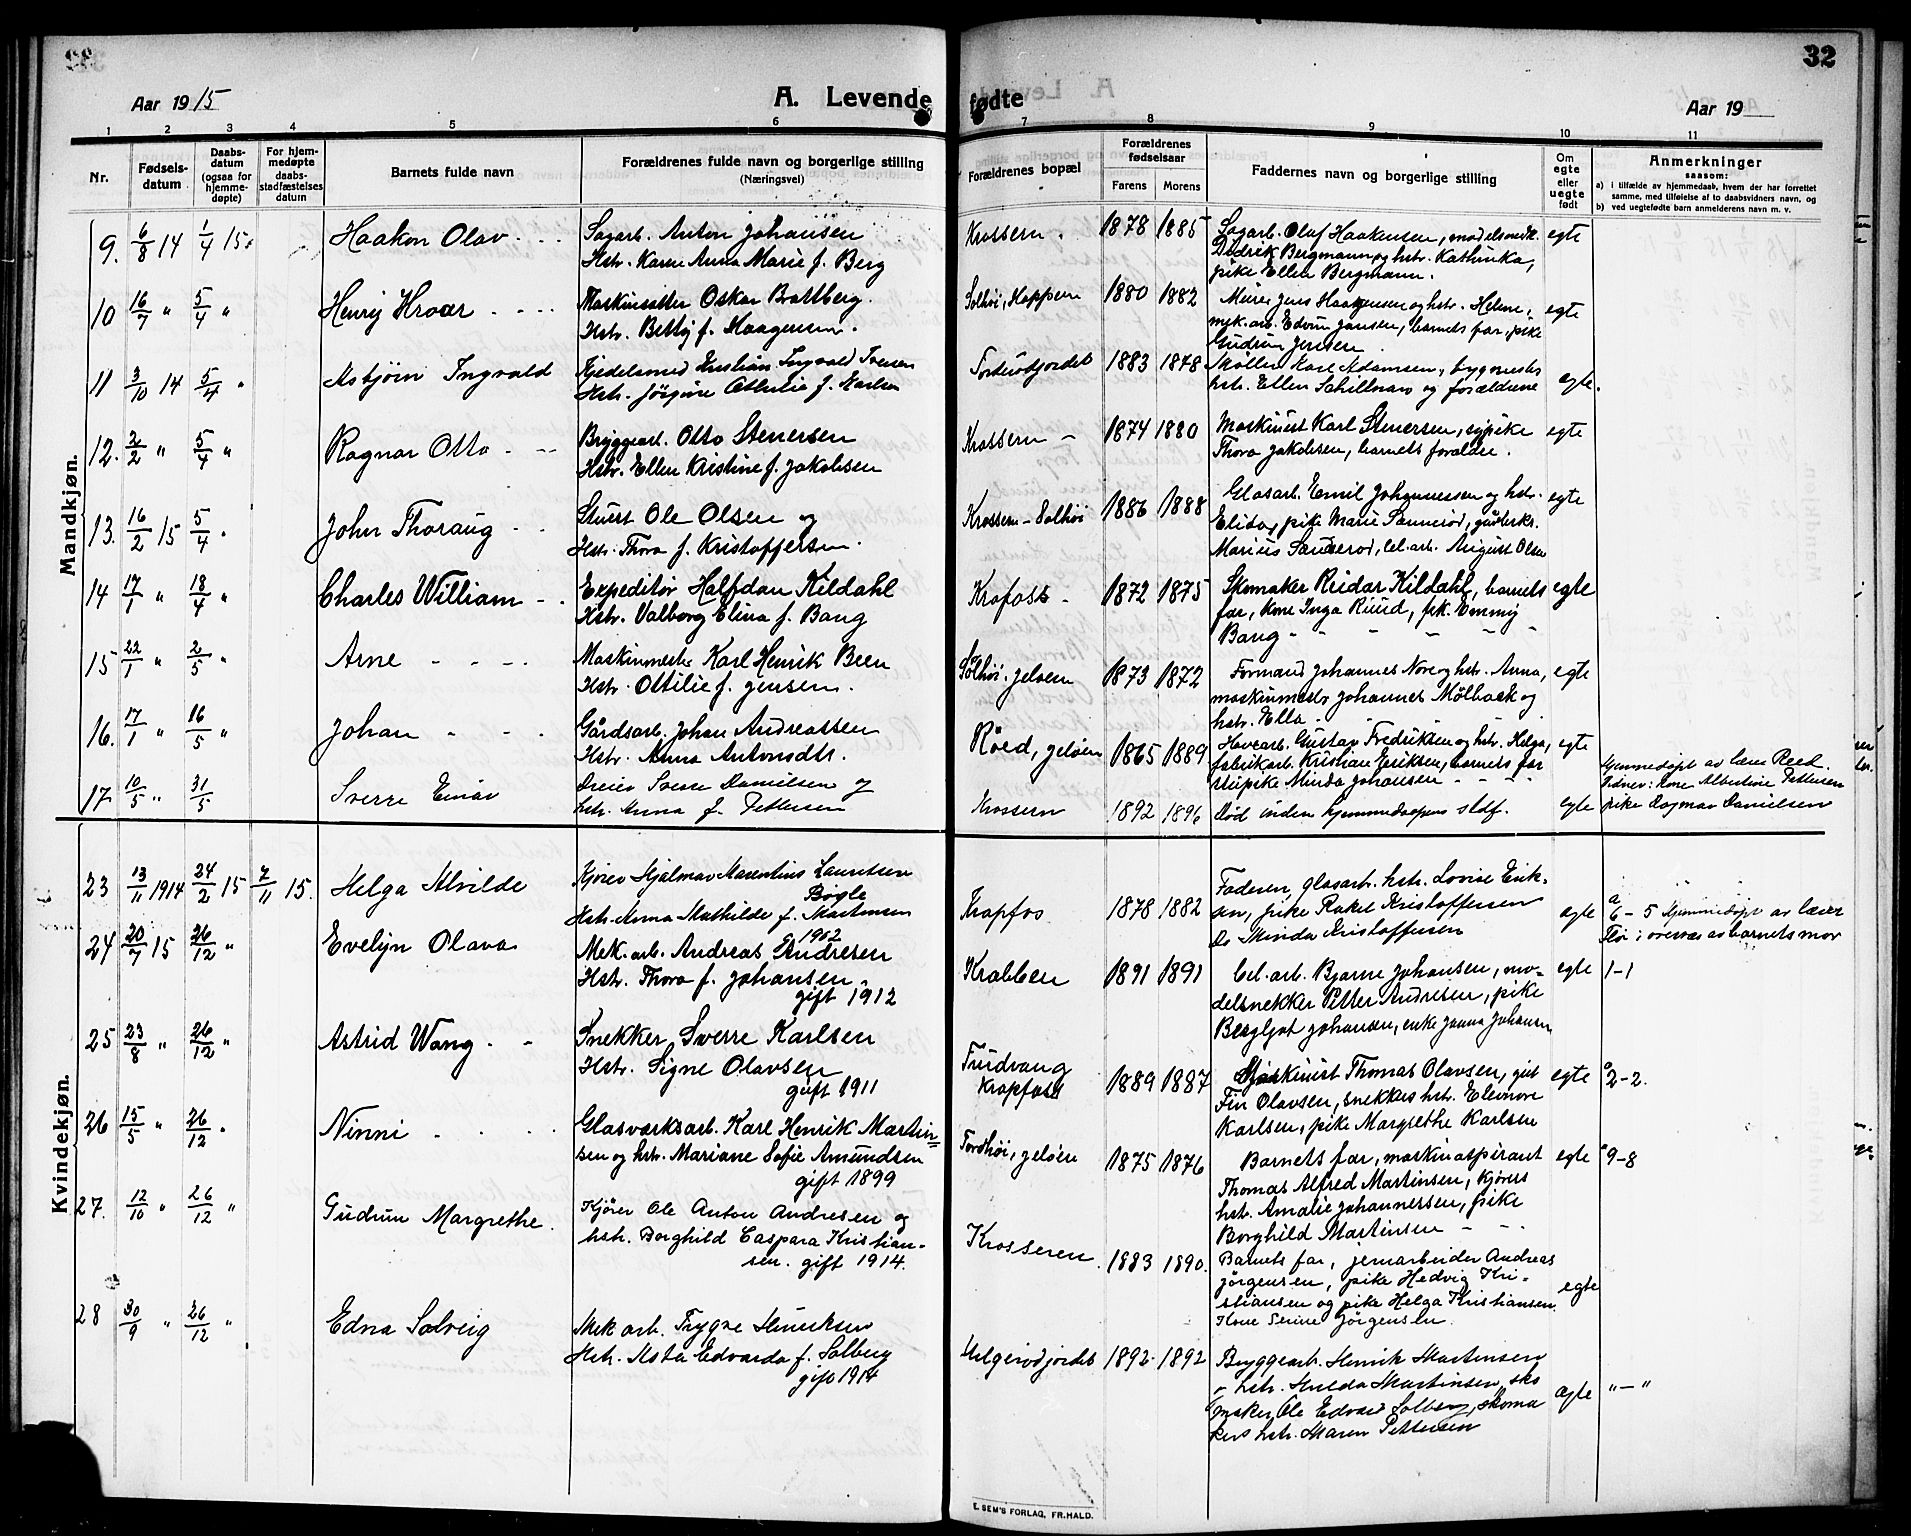 32
Aar 1915
A. Levende fødte
Aar 19
1 2 3 4 5 6 7 8 9 10 11
Nr.
Fødsels-
datum
Daabs-
datum
(ogsaa for
hjemme-
døpte)
For hjem-
medøpte
daabs-
stadfæstelses
datum
Barnets fulde navn
Forældrenes fulde navn og borgerlige stilling
(Næringsvei)
Forældrenes bopæl
Forældrenes
fødselsaar
Farens
Morens
Faddernes navn og borgerlige stilling
Om
egte
eller
uegte
født
Anmerkninger
saasom:
a) i tilfælde av hjemmedaab, hvem der har forrettet
samme, med tilføielse af to daabsvidners navn, og
b) ved uegtefødte barn anmelderens navn m. v.
Mandkjøn.
9. 6/8 14 1/4 15. Haakon Olav
Sagarb. Anton Johansen
Hstr. Karen Anna Marie f. Berg
Krossern. 1878 1885
Sagarb. Olaf Haakensen, modelsnedk.
Didrik Bergmann og hstr. Kathinka,
pike Ellen Bergmann.
egte
10 16/7 " 5/4 " Henrij Hroar
Maskinsetter Oskar Brattberg.
Hstr. Betty f. Haagensen.
Solhøi, Hoppern 1880 1882
Murer Jens Haagensen og hstr. Helene,
mek. arb. Edvin Jansen, barnets far, pike
Gudrun Jensen
egte
11 3/10 14 5/4 " Asbjørn Ingvald
Kjedelsmed Kristian Ingvald Iversen
Hstr. Jørgine Othilie f. Karlsen
1883 1878
Møller Karl Adamsen, bygmesters
hstr. Ellen og forældrene
egte.
12. 2/2 " 5/4 " Ragnar Otto
Bryggearb. Otto Stenersen
Hstr. Ellen Kristine f. Jakobsen
Krossern - 1874 1880
Maskinist Karl Stenersen, sypike
Thora Jakobsen, barnets forældre.
egte
13. 16/2 15 5/4 " John Thoraug
Stuert Ole Olsen og
Hstr. Thora f. Kristoffersen.
Krossern - Solhøi 1886 1888
Glasarb. Emil Johannessen og hstr.
Elida, pike Marie Sannerød,
Marius Sannerød, cel. arb. August Olsen
egte
14 17/1 " 18/4 " Charles William
Expeditør Halfdan Kildahl
Hstr. Valborg Elina f. Bang
Krafoss - 1872 1875
Skomaker Reidar Kildahl, barnets
far, kone Inga Ruud, pik. Emmy
Bang
egte
15 22/1 " 2/5 " Arne
Maskinmester Karl Henrik Been
Hstr. Ottilie f. Jensen.
Solhøi, Jeløen 1873 1872
Formand Johannes Nore og hstr. Anna,
maskinmestr Johannes Mølbaek og
hstr. Ella.
egte
16. 17/1 " 16/5 " Johan
Gårdsarb. Johan Andreassen
Hstr. Anna Antonsdtr.
Røed, Jeløen 1865 1889
Havearb. Gustav Fredriksen og hstr. Helga,
fabrikarb. Kristian Eriksen, barnets far
pike Minda Johansen
egte
17. 10/5 " 31/5 Sverre Einar
Dreier Sverre Danielsen og
hstr. Anna f. Pettersen
Krossern 1892 1896
Død inden hjemmedaapens stdf.
egte
Hjemmedøpt av læge Reed.
Vidner: Kone Albertine Pettersen
pike Dagmar Danielsen
Kvindekjøn.
23 13/11 1914 24/2 15 7/11 15. Helga Alvilde
Kjører Hjalmar Marentius Lauritsen
Bøgle
Hstr. Anna Mathilde f. Martinsen
1902
Krapfos 1878 1882
Faderen, glasarb. hstr. Lovise Erik-
sen, pike Rakel Kristoffersen
Do Minda Kristoffersen
egte
a 6-5 Hjemmedøpt av læge
overvær av barnets mor
24 20/7 15 26/12 " Evelyn Olava
Mek. arb. Andreas Andresen
Hstr. Thora f. Johansen
gift 1912
Krabben 1891 1891
Cel. arb. Bjarne Johansen, mo-
delsnekker Petter Andresen, pike
Bergljot Johansen, enke Janna Johansen
egte 1-1
25 23/8 " 26/12 " Astrid Wang
Snekker Sverre Karlsen
Hstr. Signe Olavsen
gift 1911
Trudvang
Krapfoss 1889 1887
Maskinist Thomas Olavsen, gut
Fin Olavsen, snekkers hstr. Elenore
Karlsen, pike Margrethe Karlsen
egte 2-2.
26 15/5 " 26/12 " Ninni
Glasværksarb. Karl Henrik Martin-
sen og hstr. Mariane Sofie Amundsen
gift 1899
Fordhøi, Jeløen 1875 1876
Barnets far, maskinaspirant
Thomas Alfred Martinsen, kjørers
hst. Amalie Johannessen, pike
Borghild Martinsen
egte 9-8
27. 12/10 " 26/12 " Gudrun Margrethe.
Kjører Ole Anton Andresen og
hstr. Borghild Caspara Kristian-
sen. gift 1914.
Krosseren 1883 1890.
Barnets far, jernarbeider Andreas
Jørgensen, pike Hedvig Kri-
stiansen og pike Helga Kristiansen
Kone Serine Jørgensen.
egte
28 30/9 " 26/12 " Edna Solveig
Mek arb. Trygve Henriksen
Hstr. Asta Edvarda f. Solberg
gift 1914
Helgerødjordet 1892 1892
Bryggearb. Henrik Martinsen
- hstr. Hulda Martinsen, sko
maker Ole Edvard Solberg, skoma
kers hstr. Maren Pettersen
egte "-"
E. SEM'S FORLAG, FR.HALD.